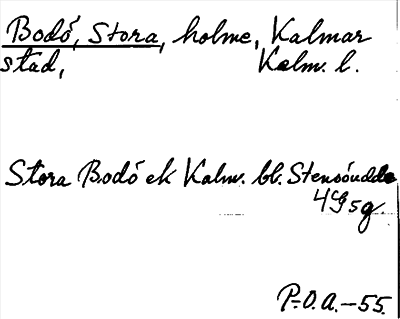 Bodö, Stora, holme, Kalmar
stad, Kalm. l.
Stora Bodö ek Kalm. bl. Stensöudde
4G5g
P.O.A.-55.